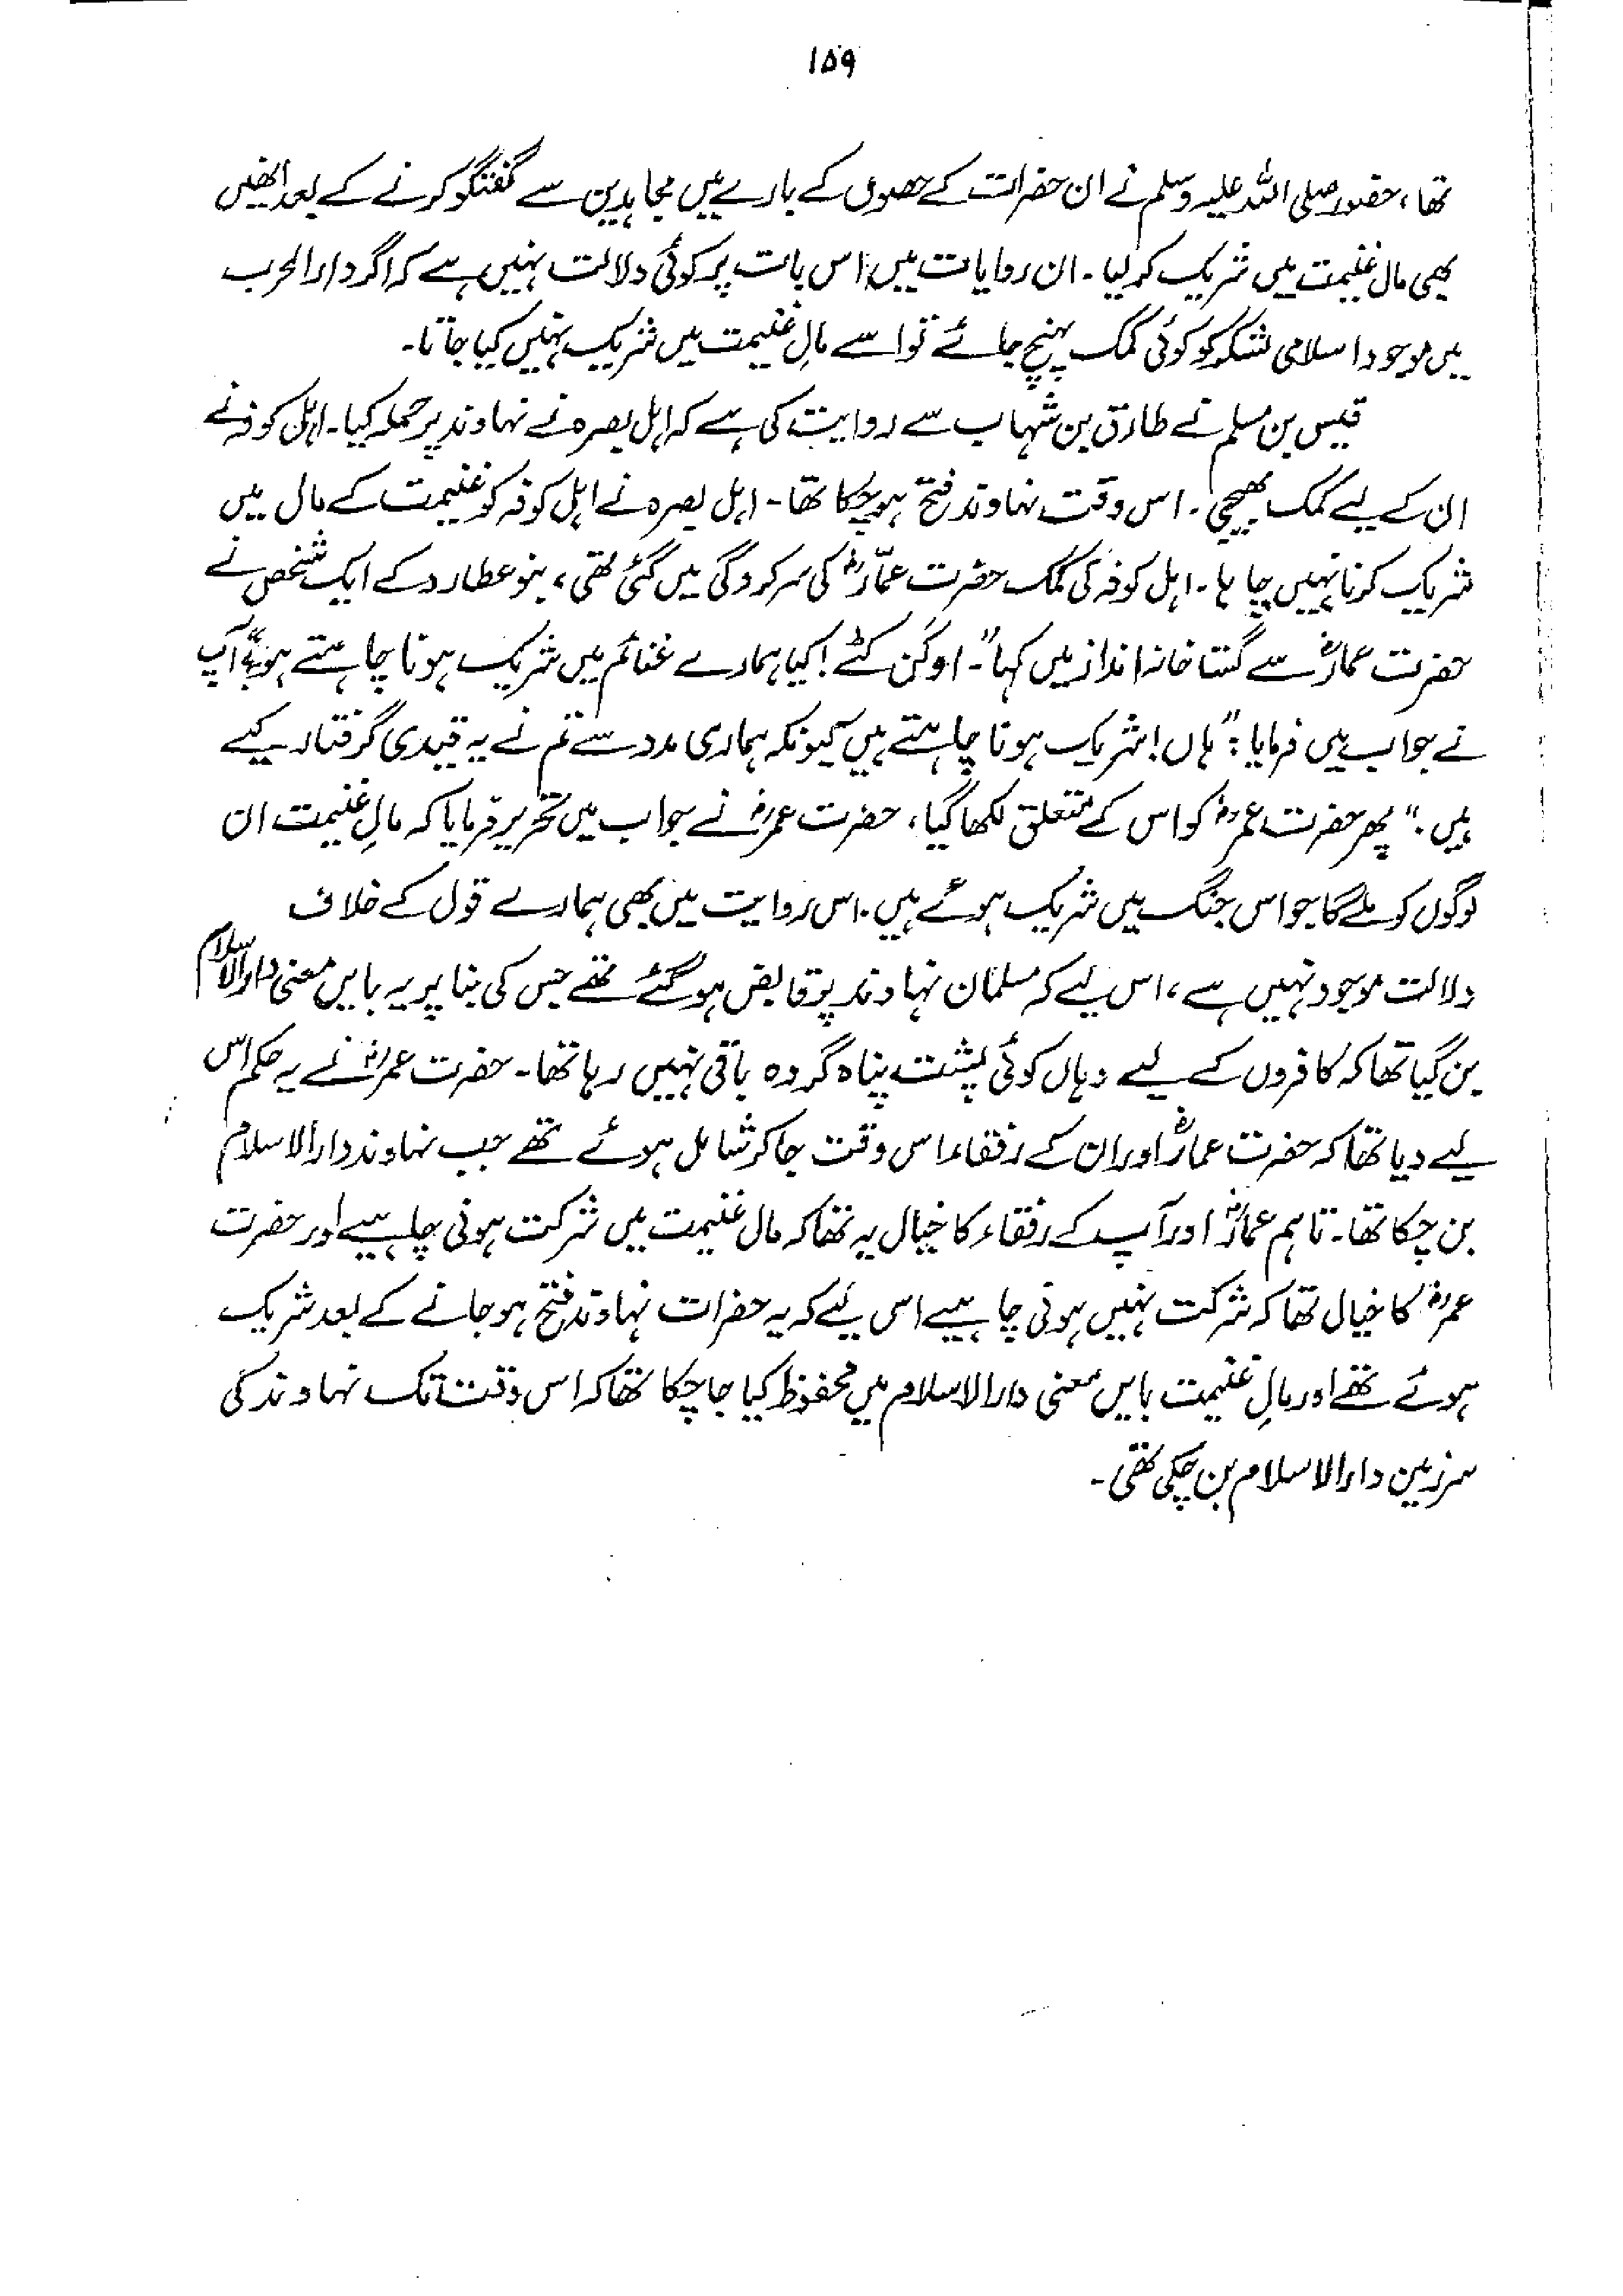 ۱۵۹
تھا، حضور صلی اللہ علیہ وسلم نے ان حضرات کے حصوں کے بارے میں مجاہدین سے گفتگو کرنے کے بعد انھیں
بھی مال غنیمت میں شریک کر لیا۔ ان روایات میں اس بات پر کوئی دلالت نہیں ہے کہ اگر دارالحرب
میں موجود اسلامی لشکر کو کوئی کمک پہنچ جائے تو اسے مالِ غنیمت میں شریک نہیں کیا جاتا۔
قیس بن مسلم نے طارق بن شہاب سے روایت کی ہے کہ اہل بصرہ نے نہاوند پر حملہ کیا۔ اہل کوفہ نے
ان کے لیے کمک بھیجی۔ اس وقت نہاوند فتح ہو چکا تھا۔ اہل بصرہ نے اہل کوفہ کو غنیمت کے مال میں
شریک کرنا نہیں چاہا۔ اہل کوفہ کی کمک حضرت عمّارؓ کی سرکردگی میں گئی تھی، بنو عطارد کے ایک شخص نے
حضرت عمارؓ سے گستاخانہ انداز میں کہا "۔ او کن کٹے! کیا ہمارے غنائم میں شریک ہونا چاہتے ہو؟" آپ
نے جواب میں فرمایا: "ہاں! شریک ہونا چاہتے ہیں کیونکہ ہماری مدد سے تم نے یہ قیدی گرفتار کیے
ہیں۔" پھر حضرت عمرؓ کو اس کے متعلق لکھا گیا، حضرت عمرؓ نے جواب میں تحریر فرمایا کہ مالِ غنیمت ان
لوگوں کو ملے گا جو اس جنگ میں شریک ہوئے ہیں۔ اس روایت میں بھی ہمارے قول کے خلاف
دلالت موجود نہیں ہے، اس لیے کہ مسلمان نہاوند پر قابض ہو گئے تھے جس کی بنا پر یہ بایں معنی دارالاسلام
بن گیا تھا کہ کافروں کے لیے وہاں کوئی پشت پناہ گروہ باقی نہیں رہا تھا۔ حضرت عمرؓ نے یہ حکم اس
لیے دیا تھا کہ حضرت عمارؓ اور ان کے رفقاء اس وقت جا کر شامل ہوئے تھے جب نہاوند دارالاسلام
بن چکا تھا۔ تاہم عمارؓ اور آپ کے رفقاء کا خیال یہ تھا کہ مال غنیمت میں شرکت ہونی چاہیے اور حضرت
عمرؓ کا خیال تھا کہ شرکت نہیں ہونی چاہیے اس لیے کہ یہ حضرات نہاوند فتح ہو جانے کے بعد شریک
ہوئے تھے اور مالِ غنیمت بایں معنی دارالاسلام میں محفوظ کیا جا چکا تھا کہ اس وقت تک نہاوند کی
سرزمین دارالاسلام بن چکی تھی۔